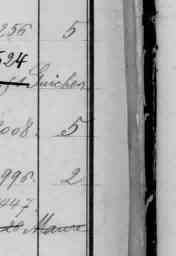 256 5
524
Guichen
2008. 5
996. 2
447
20 Maure